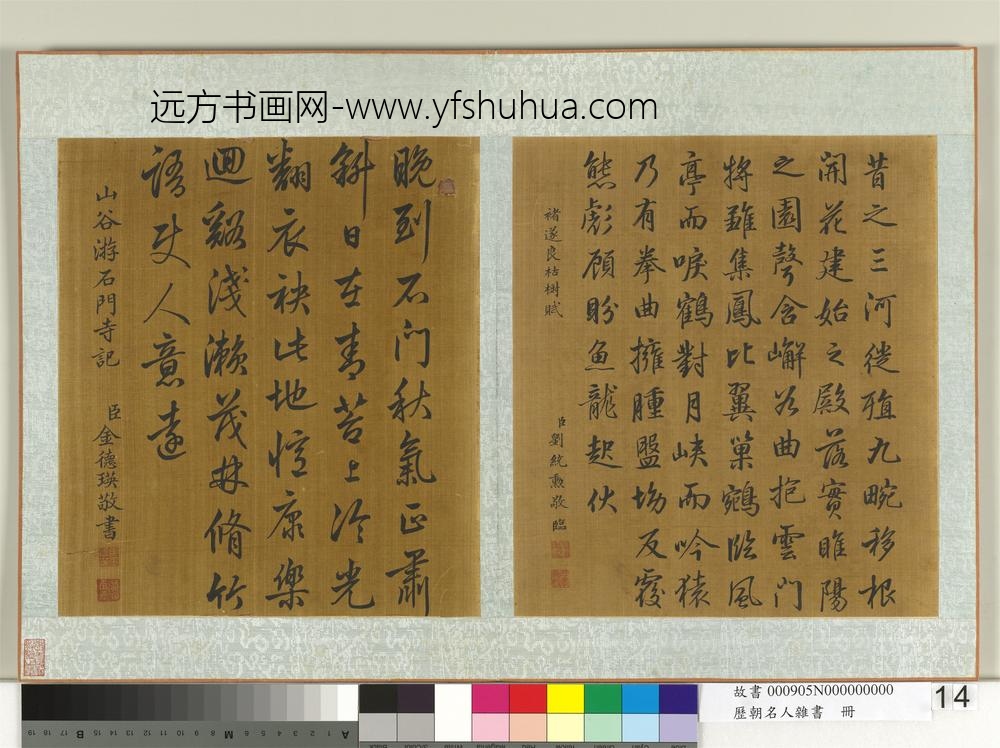 远方书画网-www.yfshuhua.com
昔之三河徙殖九畹移根
開花建始之殿落實睢陽
之園聲含嶰谷曲抱雲門
將雛集鳳比翼巢鵷臨風
亭而唳鶴對月峽而吟猿
乃有拳曲擁腫盤坳反覆
熊彪顧盼魚龍起伏
褚遂良枯樹賦
臣劉統勳敬臨
晩到石門秋氣正肅
斜日在青苔上冷光
翻衣袂此地惟康樂
迴谿淺瀨茂林脩竹
語使人意遠
山谷游石門寺記
臣金德瑛敬書
故書 000905N000000000
歷朝名人雜書 冊
14